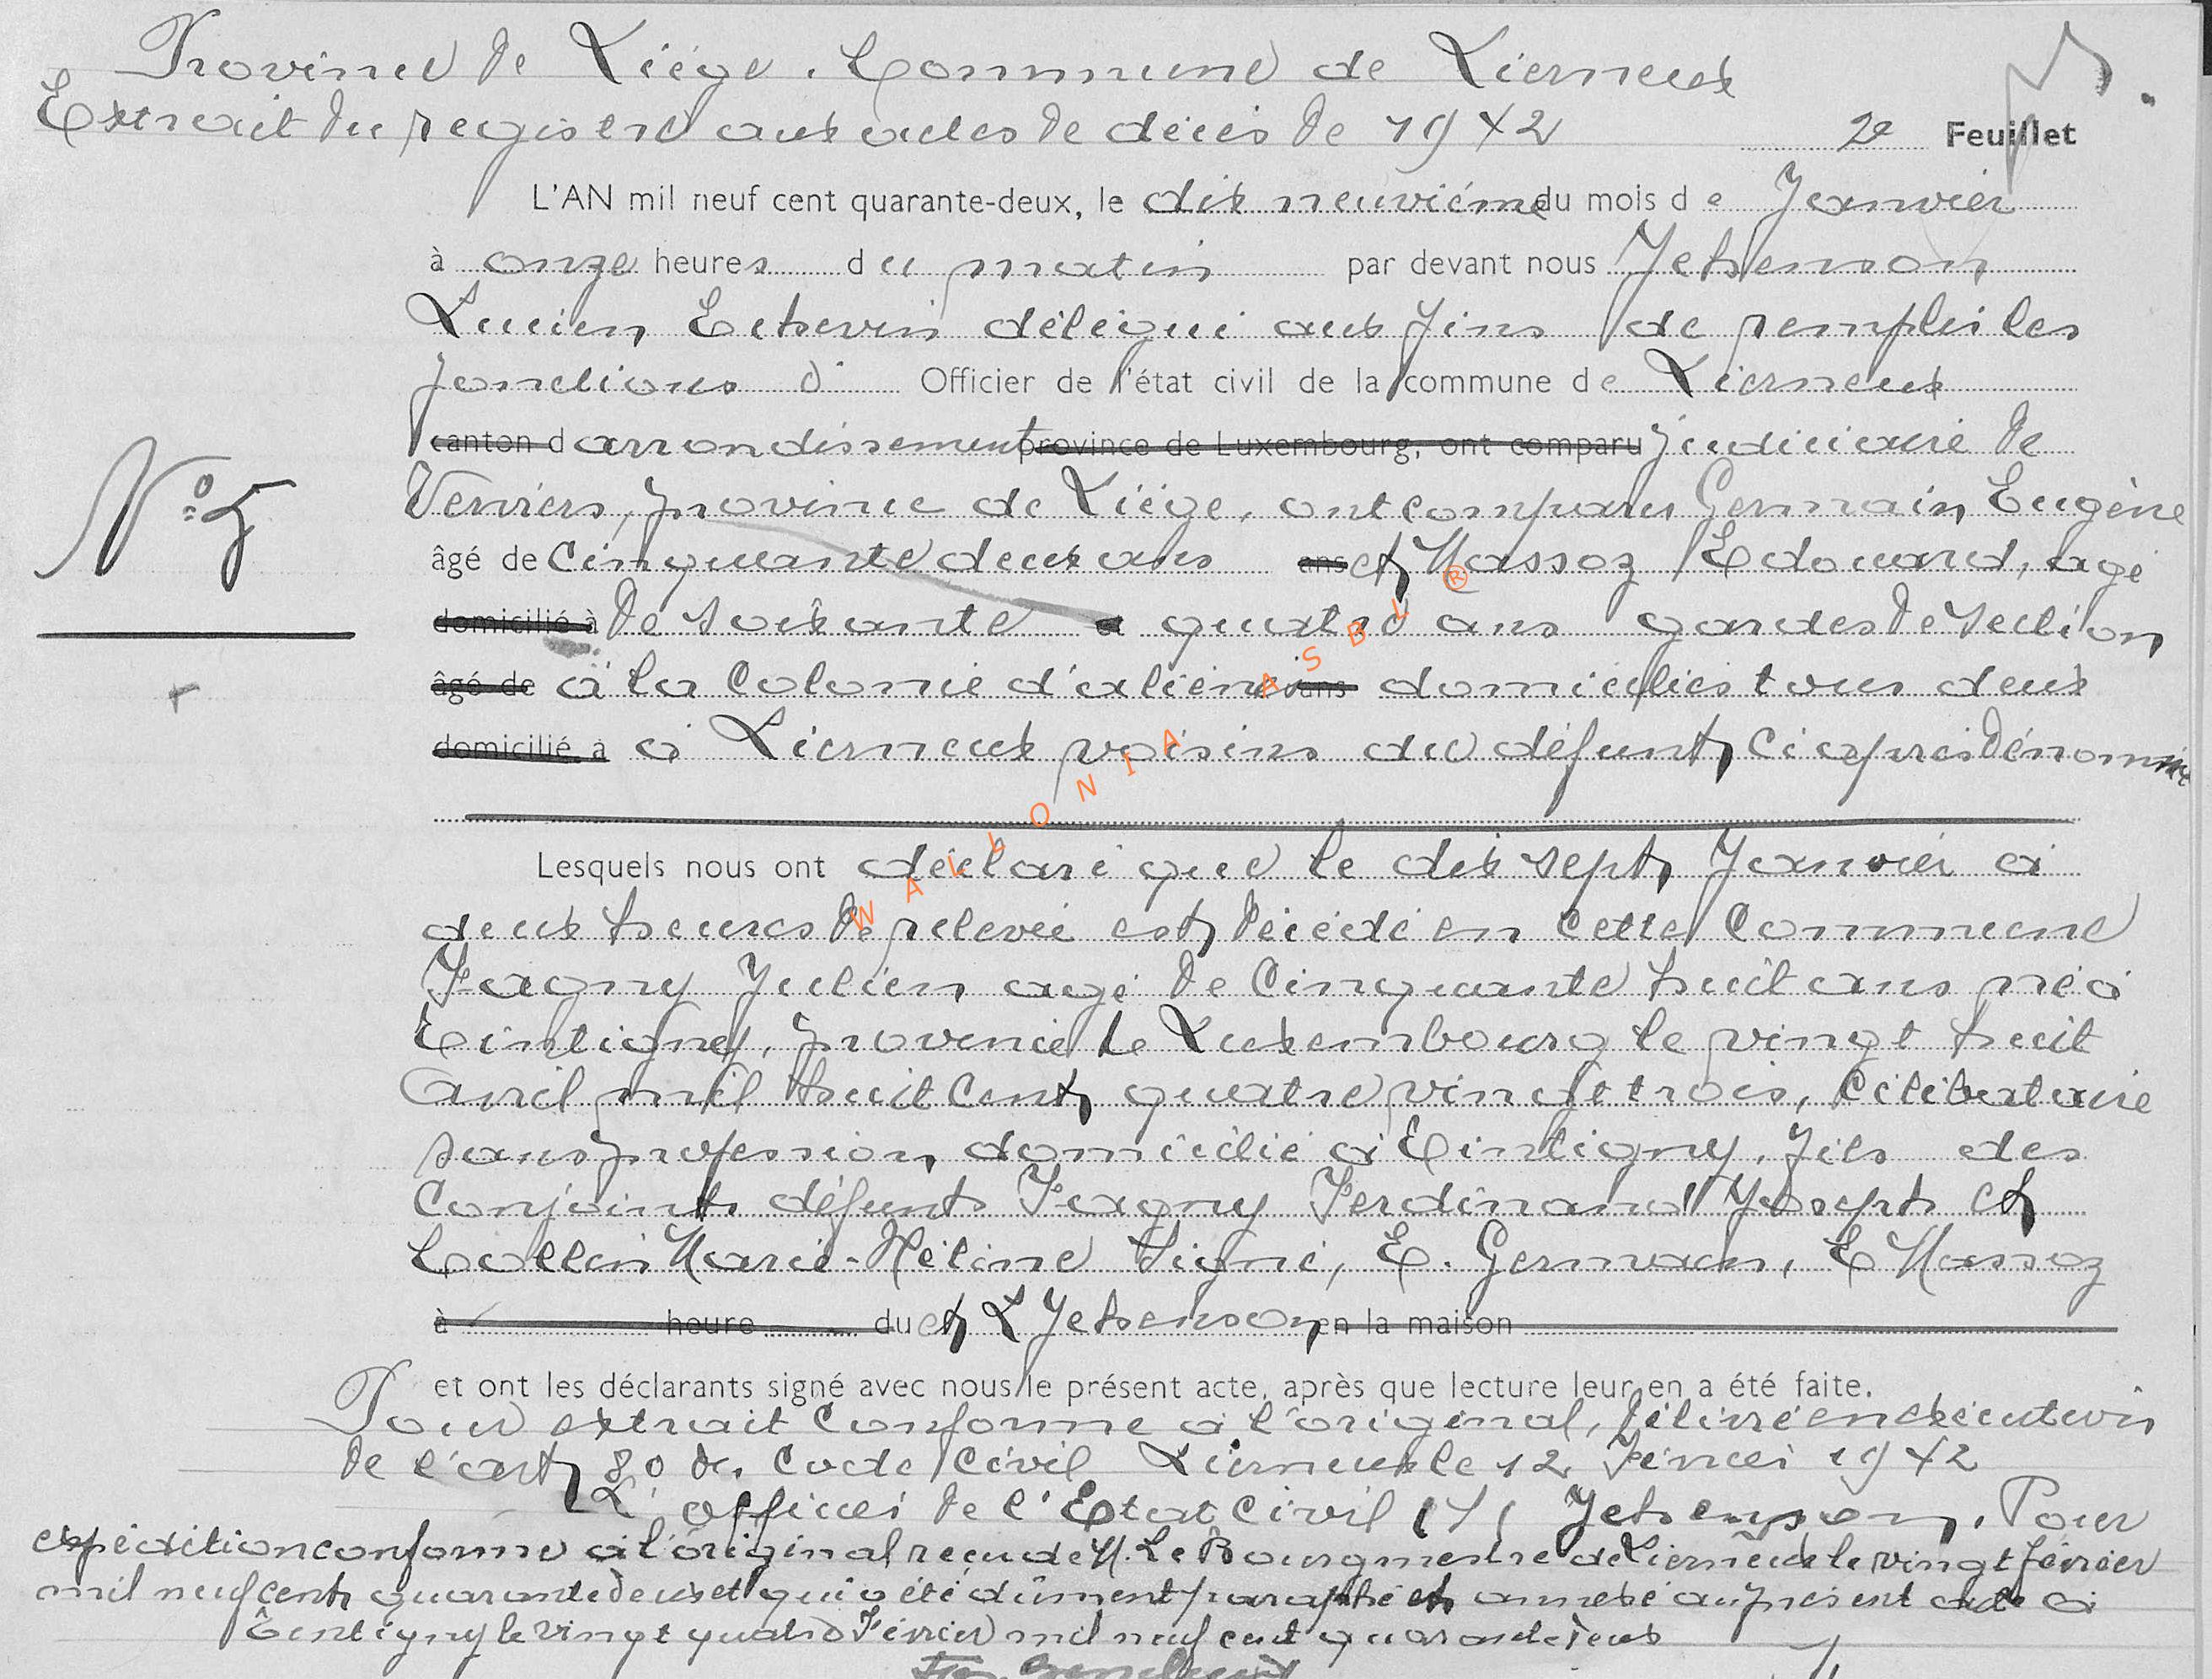 Province de Liége. Commune de Lierneux
Extrait du registre aux actes de décès de 1942
2e Feuillet
L'AN mil neuf cent quarante-deux, le dix neuvième du mois de Janvier
à onze heures du matin par devant nous Jehenson
Lucien Echevin délégué aux fins de remplir les
fonctions d' Officier de l'état civil de la commune de Lierneux
canton d arrondissement province de Luxembourg, ont comparu judiciaire de
N° 5
Verviers, province de Liége, ont comparu Germain Eugène
âgé de cinquante deux ans ans et Massoz Edouard, agé
domicilié à de soixante quatre ans gardes de section
âgé de à la Colonie d'aliénés ans domiciliés tous deux
domicilié à à Lierneux voisins du défunt ci après dénommé
Lesquels nous ont déclaré que le dix sept Janvier à
deux heures de relevée est décédé en cette Commune
Fagny Julien agé de Cinquante huit ans né à
Tintigny, province de Luxembourg le vingt huit
Avril mil huit Cent quatre vingt trois, Célibataire
sans profession domicilié à Tintigny, fils des
Conjoints défunts Fagny Ferdinand Joseph et
Collin Marie-Hélène Signé, E. Germain, E Massoz
à heure du et L Jehenson en la maison
et ont les déclarants signé avec nous le présent acte, après que lecture leur en a été faite.
Pour extrait Conforme à l'original, délivré en exécution
de l'art 80 du Code Civil Lierneux le 12 Février 1942
L'officier de l'Etat Civil (s) Jehenson. Pour
expédition conforme à l'original reçu de M. Le Bourgmestre de Lierneux le vingt février
mil neuf cent quarante deux et qui a été dûment paraphé et annexé au présent acte à
Tintigny le vingt quatre Février mil neuf cent quarante deux
WALLONIA ASBL ®